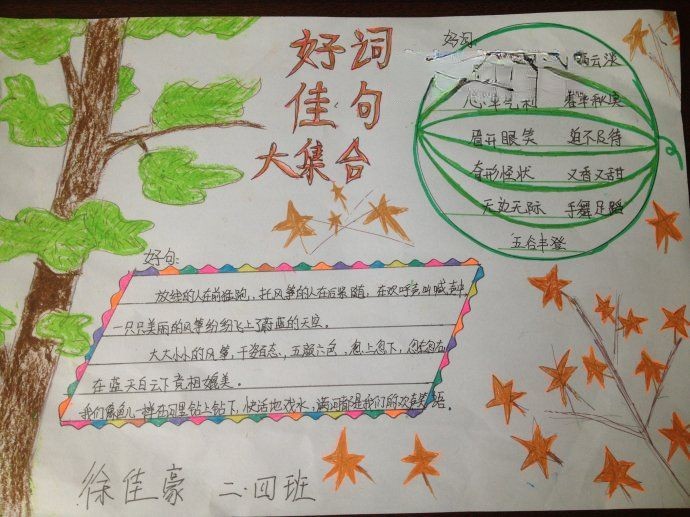 好词
佳句
大集合
好词:
云淡
眉开眼笑 迫不及待
奇形怪状 又香又甜
无边无际 手舞足蹈
五谷丰登
好句:
放线的人在前猛跑,托风筝的人在后紧随,在欢呼声叫喊声中,
一只只美丽的风筝纷纷飞上了蔚蓝的天空。
大大小小的风筝,千姿百态、五颜六色、忽上忽下,忽左忽右
在蓝天白云下竞相媲美。
我们像鱼儿一样在河里钻上钻下,快活地戏水,满河都是我们的欢声笑语。
徐佳豪 二.四班